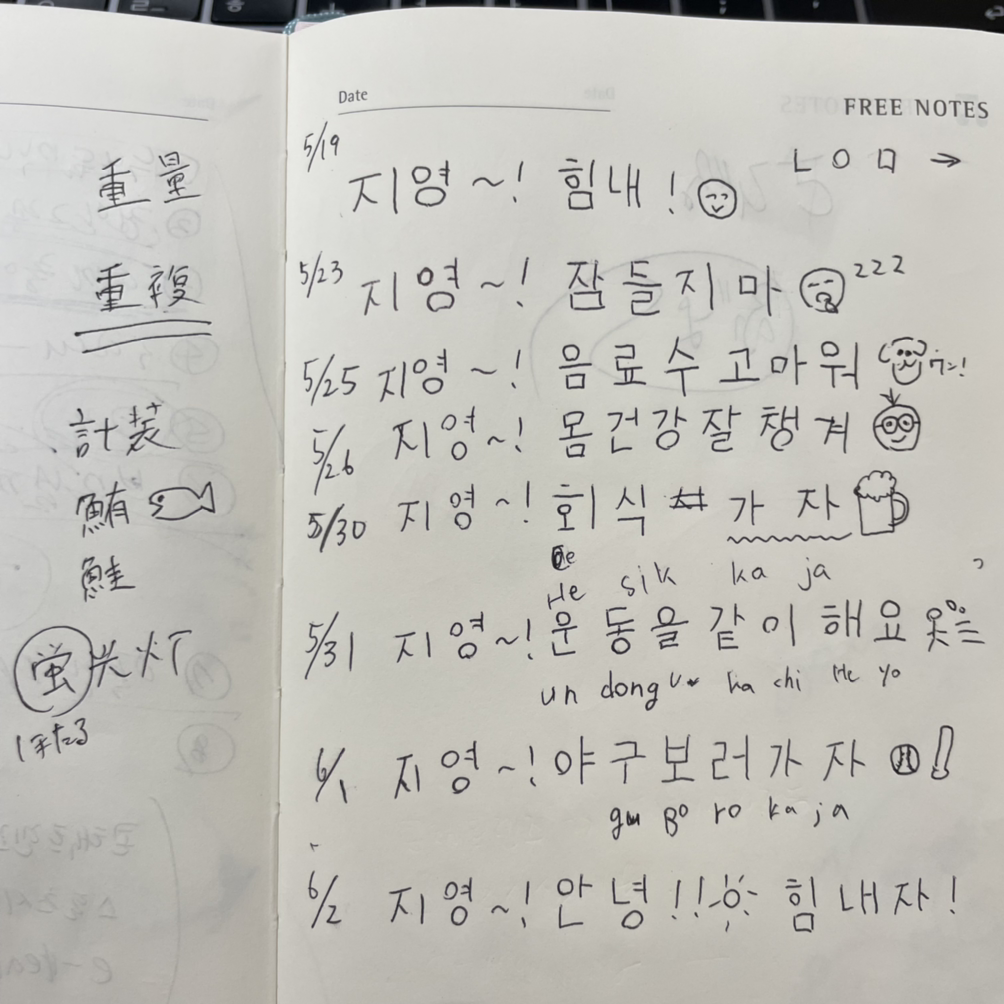 重量
重複
計装
鮪
鮭
蛍光灯
ほたる
Date
FREE NOTES
ㄴ ㅇ ㅁ →
5/19 지영~! 힘내!
5/23 지영~! 잠들지마 zzz
5/25 지영~! 음료수 고마워 ワン!
5/26 지영~! 몸건강잘챙겨
5/30 지영~! 회식 가자
He sik ka ja
5/31 지영~! 운동을 같이 해요
un dong ka chi He yo
6/1 지영~! 야구보러가자
gu Bo ro ka ja
6/2 지영~! 안녕!! 힘내자!